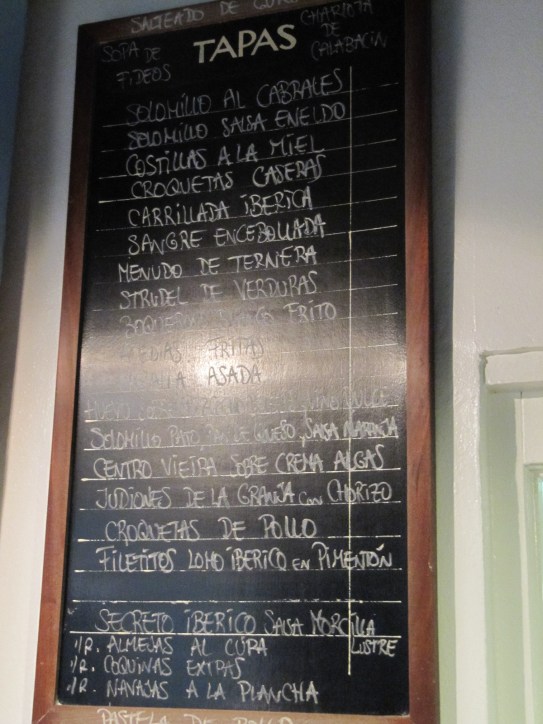 SALTEADO DE
SOPA DE
FIDEOS
TAPAS
CHARLOTA
DE
CALABACIN
SOLOMILLO AL CABRALES
SOLOMILLO SALSA ENELDO
COSTILLAS A LA MIEL
CROQUETAS CASERAS
CARRILLADA IBERICA
SANGRE ENCEBOLLADA
MENUDO DE TERNERA
STRUDEL DE VERDURAS
FRITO
FRITAS
ASADA
SOLOMILLO PATO, QUESO, SALSA NARANJA
CENTRO VIEIRA SOBRE CREMA ALGAS
JUDIONES DE LA GRANJA con CHORIZO
CROQUETAS DE POLLO
FILETITOS LOMO IBERICO EN PIMENTÓN
SECRETO IBERICO SALSA MORCILLA
LUSTRE
1/R. ALMEJAS AL CURA
1/R. COQUINAS EXTRAS
1/R. NAVAJAS A LA PLANCHA
PASTELA DE POLLO